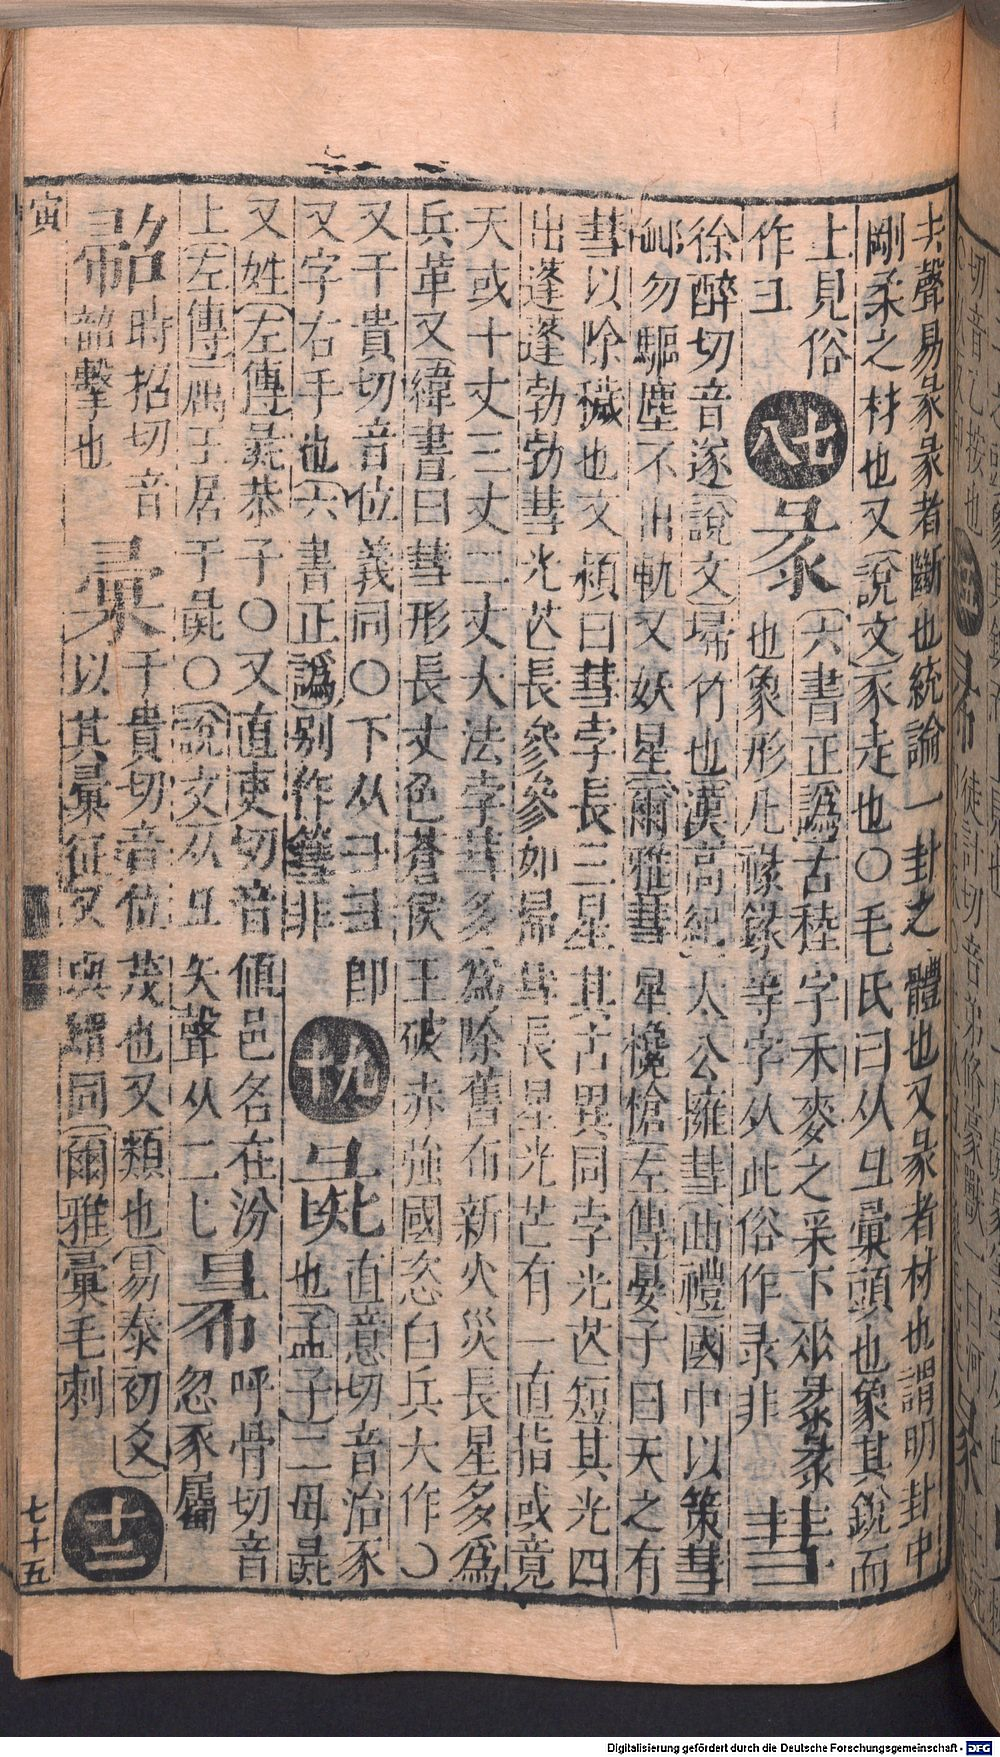 去聲易彖彖者斷也統論一卦之體也又彖者材也謂明卦中
剛柔之材也又說文豕走也〇毛氏曰从彑彙頭也象其銳而
上見俗作彐
七八
彔
六書正譌古稑字禾麥之采下垂也象形凡祿錄等字从此俗作录非
彗
徐醉切音遂說文埽竹也漢高紀太公擁彗曲禮國中以策彗
卹勿驅塵不出軌又妖星爾雅彗星欃槍左傳晏子曰天之有
彗以除穢也文頴曰彗孛長三星其占異同孛光芒短其光四
出蓬蓬勃勃彗光芒長參參如埽彗長星光芒有一直指或竟
天或十丈三丈二丈大法孛彗多為除舊布新火災長星多為
兵革又緯書曰彗形長丈色蒼侯王破赤強國恣白兵大作〇
又于貴切音位義同〇下从
又字右手也六書正譌別作篲非
即
九十
彘
直意切音治豕也孟子二母彘
又姓左傳彘恭子〇又直吏切音値邑名在汾
上左傳厲王居于彘〇說文从彑矢聲从二匕
呼骨切音忽豕屬
時招切音韶擊也
彙
于貴切音位茂也又類也易泰初爻
以其彙征又與蝟同爾雅彙毛刺
十二
寅
七十五
Digitalisierung gefördert durch die Deutsche Forschungsgemeinschaft - DFG